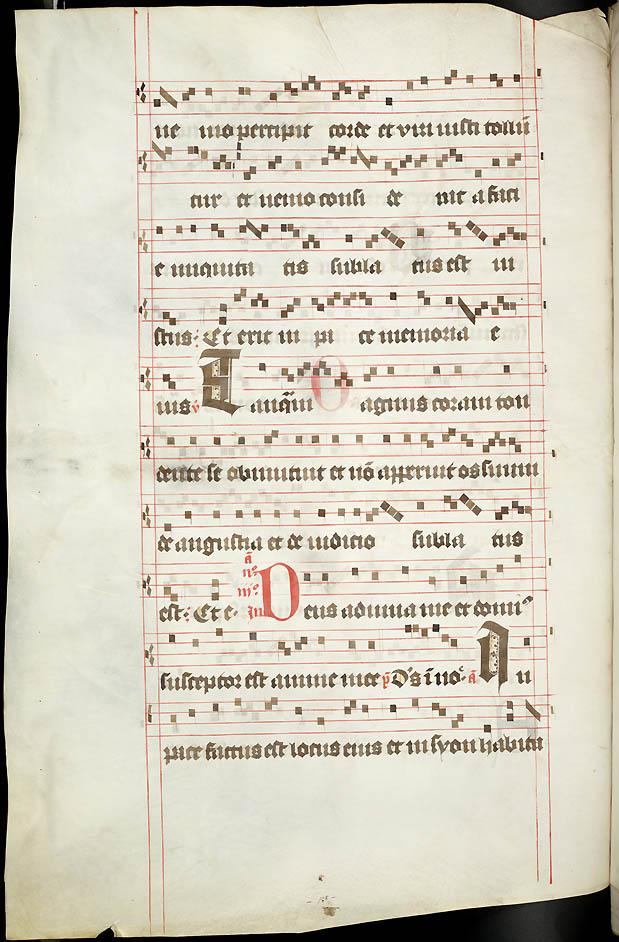 ne mo percipit corde et viri iusti tollũ
tur et nemo consi de rat a faci
e iniquita tis subla tus est iu
stus: Et erit in pa ce memoria e
ius v̓ Tanq̃m agnus coram ton
dente se obmutuit et nõ apperuit os suum
de angustia et de iudicio subla tus
est: Et e. ã nº. iijº. In Deus adiuua me et domiꝰ
susceptor est anime mee p̃ Ds̃ ĩ noᷓ. ã In
pace factus est locus eius et in syon habita